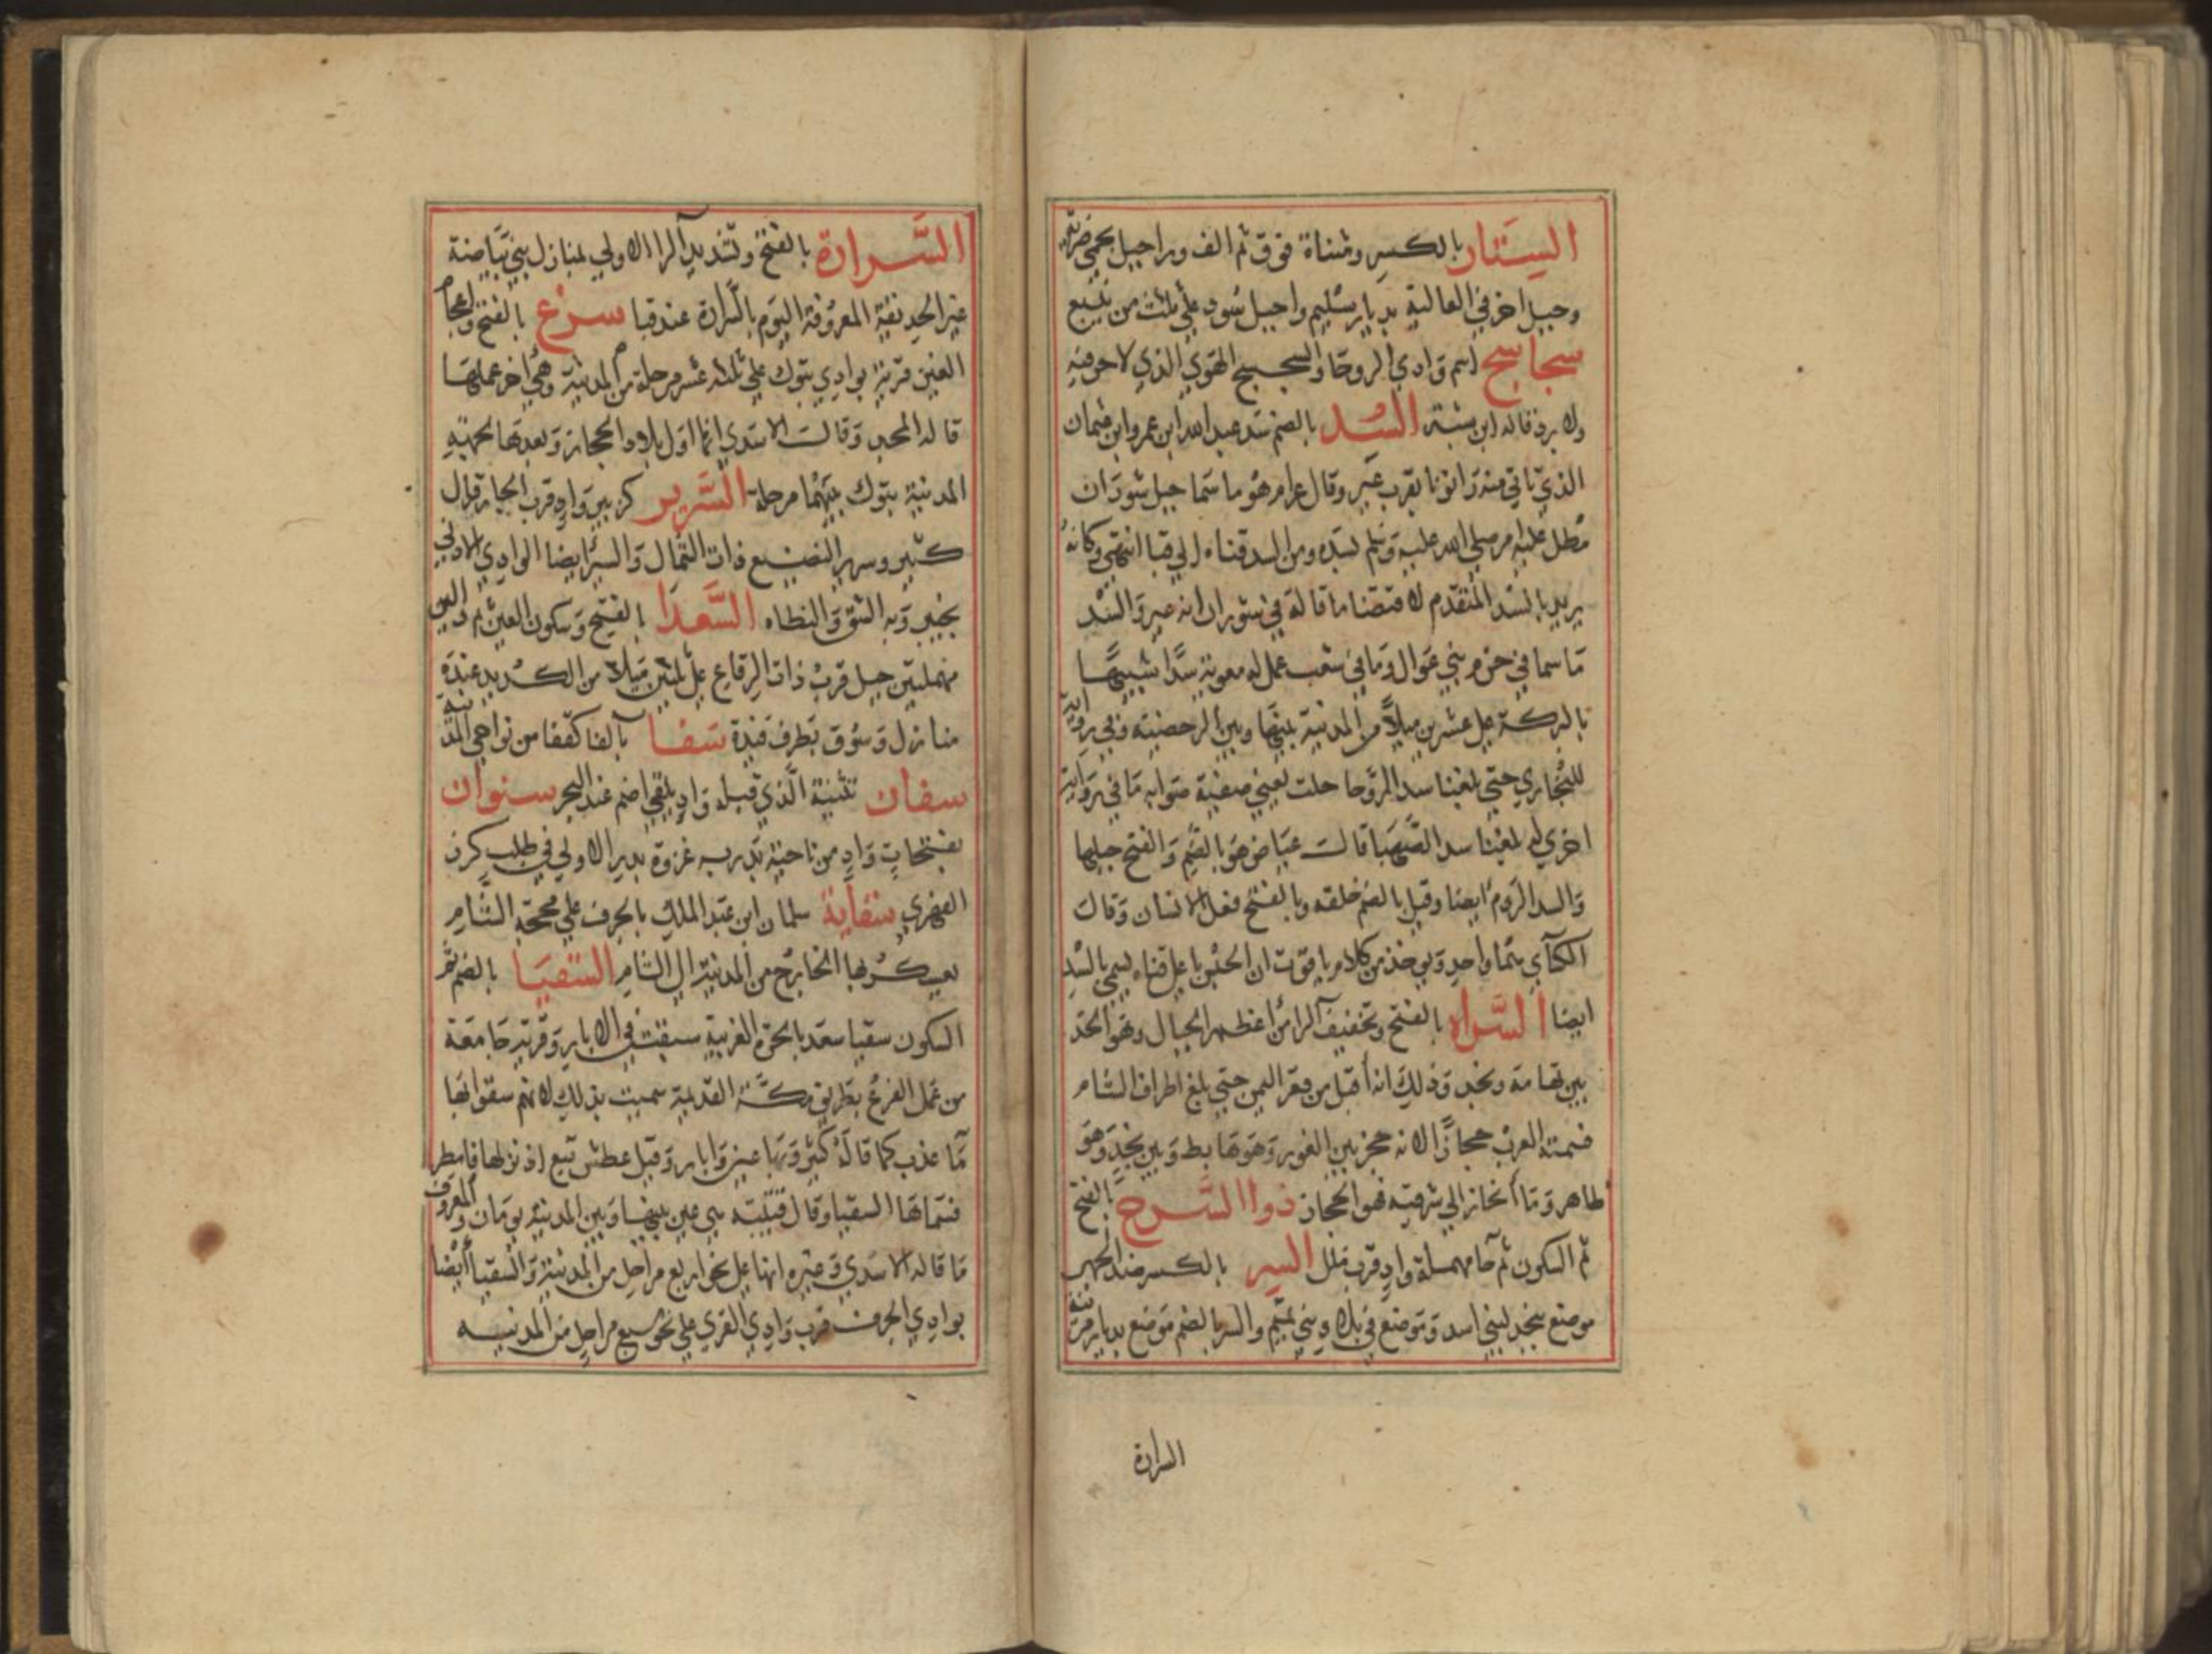 الستار بالكسر ومثناة فوق ثم الف ورا جبل بحمي ضرية
وجبل اخر في العالية بديار سليم واجبل سود علي ثلث من ينبع
سجاسج اسم وادي الروحا والسجسج الهوي الذي لا حر فيه
ولا برد قاله ابن شبة السد بالضم سد عبد الله ابن عمرو ابن عثمان
الذي ياتي منه رانونا بقرب عير وقال عرام هو ما سما جبل شوران
مطل عليه امر صلي الله عليه وسلم بسده ومن السد قناه الي قبا انتهي وكانه
يريد بالسد المتقدم لاقتضا ما قاله في شوران انه عير والسد
ما سما في حزم بني عوال وما في شعب عمل له معوية سدا شبيها
بالبركة علي عشرين ميلا من المدينة بينها وبين الرحضية وفي رواية
للبخاري حتي بلغنا سد الروحا حلت يعني صفية صوابه ما في رواية
اخري له بلغنا سد الصهبا قالـ عياض هو بالضم والفتح جبلها
والسد الروم ايضا وقيل بالضم خلقه وبالفتح فعل الانسان وقال
الكسآي هما واحد ويوخذ من كلام ياقوت ان الحثريا علي قناه يسمي بالسد
ايضا السراه بالفتح وتخفيف الرا من اعظم الجبال وهو الحد
بين تهامة ونجد وذلك انه اقبل من قعر اليمن حتي بلغ اطراف الشام
فسمته العرب حجازا لانه حجز بين الغور وهو هابط وبين نجد وهو
ظاهر وما انحاز الي شرقيه فهو الحجاز ذوا السرح بالفتح
ثم السكون ثم حا مهملة واد قرب ملل السر بالكسر ضد الجهر
موضع بنجد لبني اسد وموضع في بلاد بني تميم والسر بالضم موضع بديار مزينة
السرارة
السرارة بالفتح وتشديد الرا الاولي لمنازل بني بياضة
غير الحديقة المعروفة اليوم بالسرارة عند قبا سرغ بالفتح واعجام
الغين قرية بوادي تبوك علي ثلثه عشر مرحلة من المدينة وهي اخر عملها
قاله المجد وقالـ الاسدي انها اول بلاد الحجاز وبعدها لجهة
المدينة تبوك بينهما مرحلة السرير كزبير واد قرب الجار قال
كثير وسرير البضيع ذات الشمال والسرير ايضا الوادي الادني
بخيبر وبه الشق والنطاه السعدا بالفتح وسكون العين ثم والين
مهملتين جبل قرب ذات الرقاع علي ثلثين ميلا من الكديد عنده
منازل وسوق بطرف فيدة سفا بالفا كقفا من نواحي المدينة
سفان تثنية الذي قبله واد يلقي اضم عند البحر سفوان
بفتحات واد من ناحية بدر به غزوة بدر الاولي في طلب كرز
الفهري سقاية سلمان ابن عبد الملك بالجرف علي محجة الشام
يعسكر بها الخارج من المدينة الي الشام السقيا بالضم ثم
السكون سقيا سعد بالحرة الغربية سبقت في الابار وقرية جامعة
من عمل الفرع بطريق مكة القديمة سميت بذلك لانهم سقوا بها
مآ عذب كما قاله كثير وبها عين وابار وقيل عطش تبع اذ نزلها فامطر
فسماها السقيا وقال قتيبة هي عين بينها وبين المدينة يومان والمعروف
ما قاله الاسدي وغيره انها علي نحو اربع مراحل من المدينة والسقيا ايضا
بوادي الجرف قرب وادي القري علي نحو سبع مراحل من المدينة